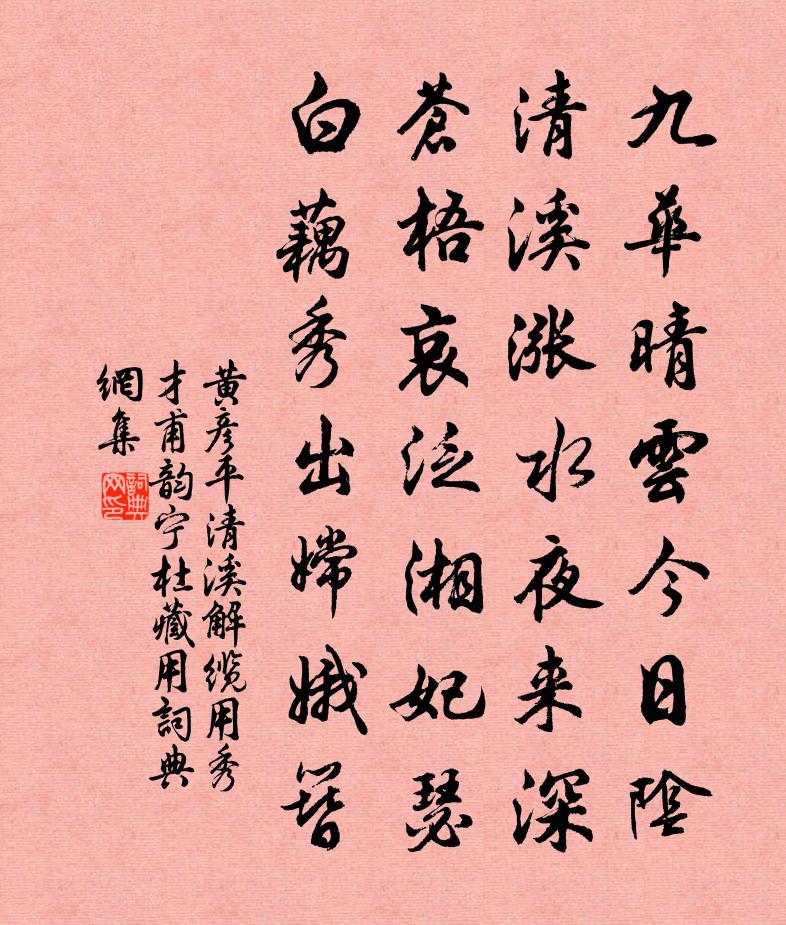 九華晴雲今日陰
清溪漲水夜来深
蒼梧哀泛湘妃瑟
白藕秀出嫦娥簪
黄彦平清溪解缆用秀
才甫韵宁杜藏用詞典
網集
詞典
网印